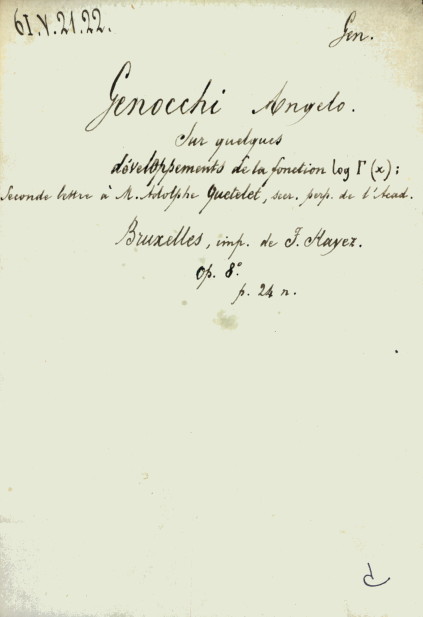 61.V.21.22.
Gen.
Genocchi Angelo.
Sur quelques
développements de la fonction log Γ(x);
Seconde lettre à M. Adolphe Quetelet, secr. perp. de l'Acad.
Bruxelles, imp. de F. Hayez.
op. 8º
p. 24 n.